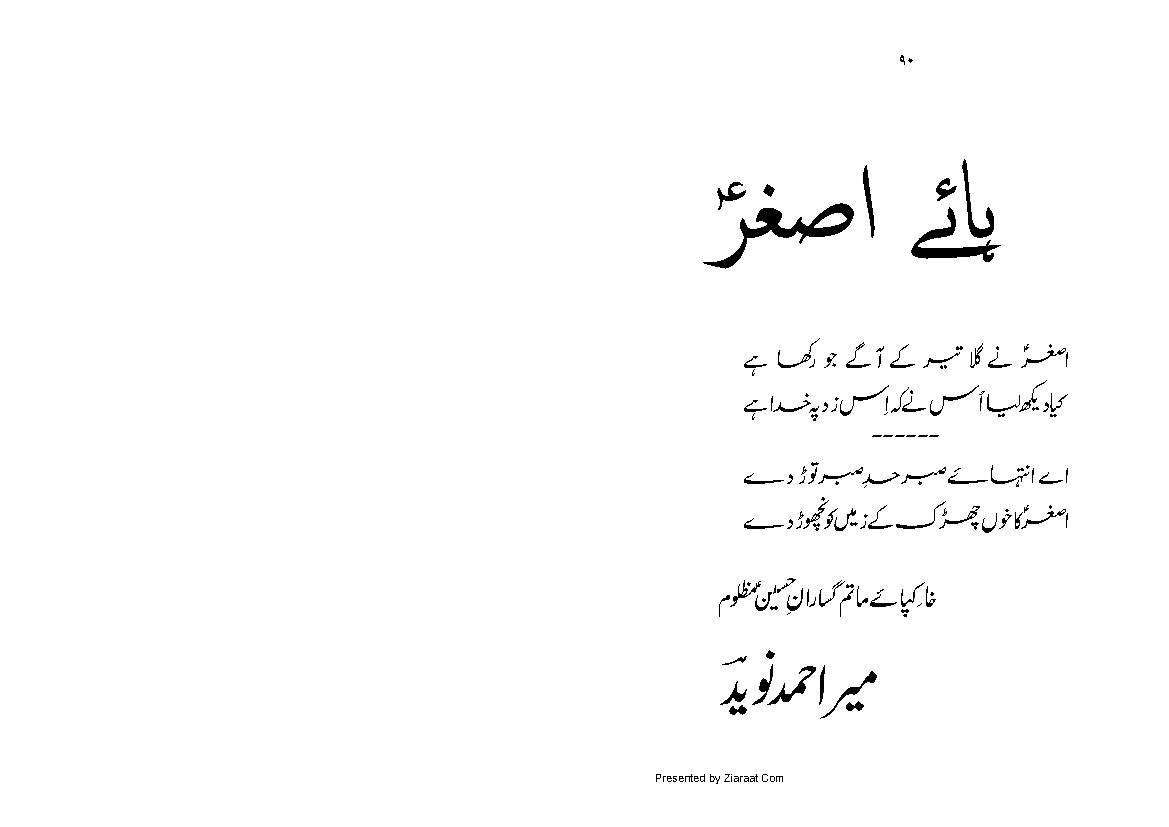 ۹۰
ہائے اصغرؑ
اصغرؑ نے گلا تیر کے آگے جو رکھا ہے
کیا دیکھ لیا اُس نے کہ اِس زد پہ خدا ہے
------
اے انتہائے صبر حدِ صبر توڑ دے
اصغرؑ کا خوں چھڑک کے زمیں کو نچھوڑ دے
خارِ کپائے ماتم گسارانِ حسینؑ مظلوم
میر احمد نویدؔ
Presented by Ziaraat Com